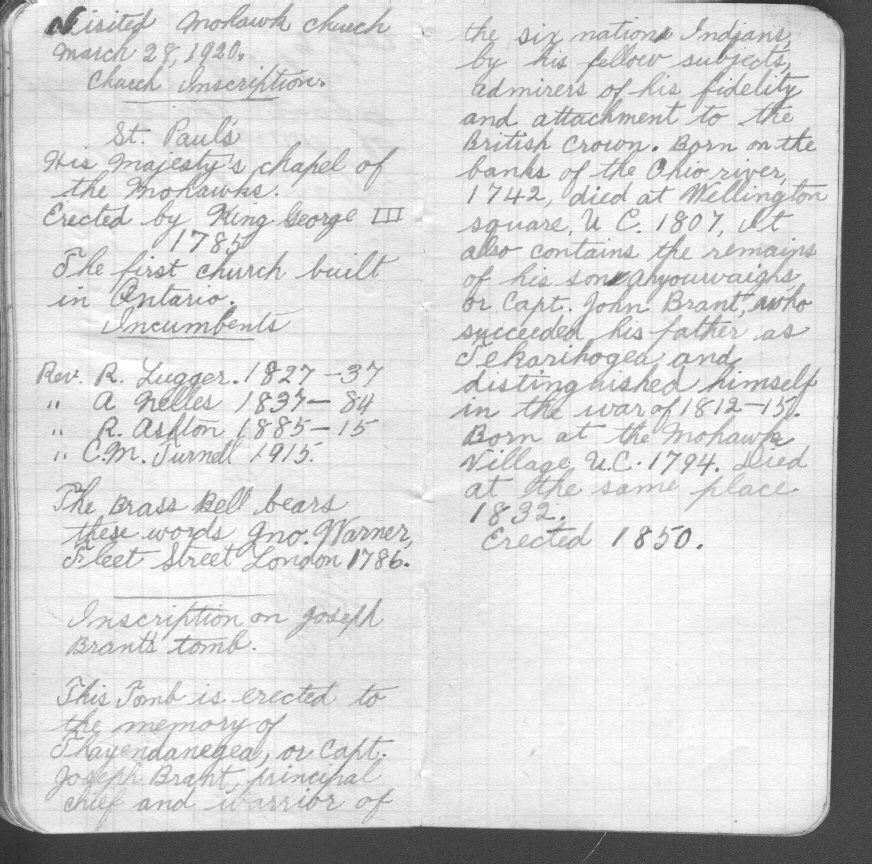 Visited Mohawk church
March 28, 1920.
Church Inscription.
St. Paul's
His Majesty's chapel of
the Mohawks.
Erected by King George III
1785
The first church built
in Ontario.
Incumbents
Rev. R. Lugger. 1827-37
" A Nelles 1837-84
" R. Ashton 1885-15
" C.M. Turnell 1915.
The Brass Bell bears
these words Jno. Warner,
Fleet Street London 1786.
Inscription on Joseph
Brant's tomb.
This Tomb is erected to
the memory of
Thayendanegea, or Capt.
Joseph Brant, principal
chief and warrior of
the six nations Indians,
by his fellow subjects,
admirers of his fidelity
and attachment to the
British Crown. Born on the
banks of the Ohio river,
1742, died at Wellington
square, U C. 1807, It
also contains the remains
of his son Ahyouwaighs,
or Capt. John Brant, who
succeeded his father as
Tekarihogea and
distinguished himself
in the war of 1812-15.
Born at the Mohawk
Village, U.C. 1794. Died
at the same place
1832.
Erected 1850.